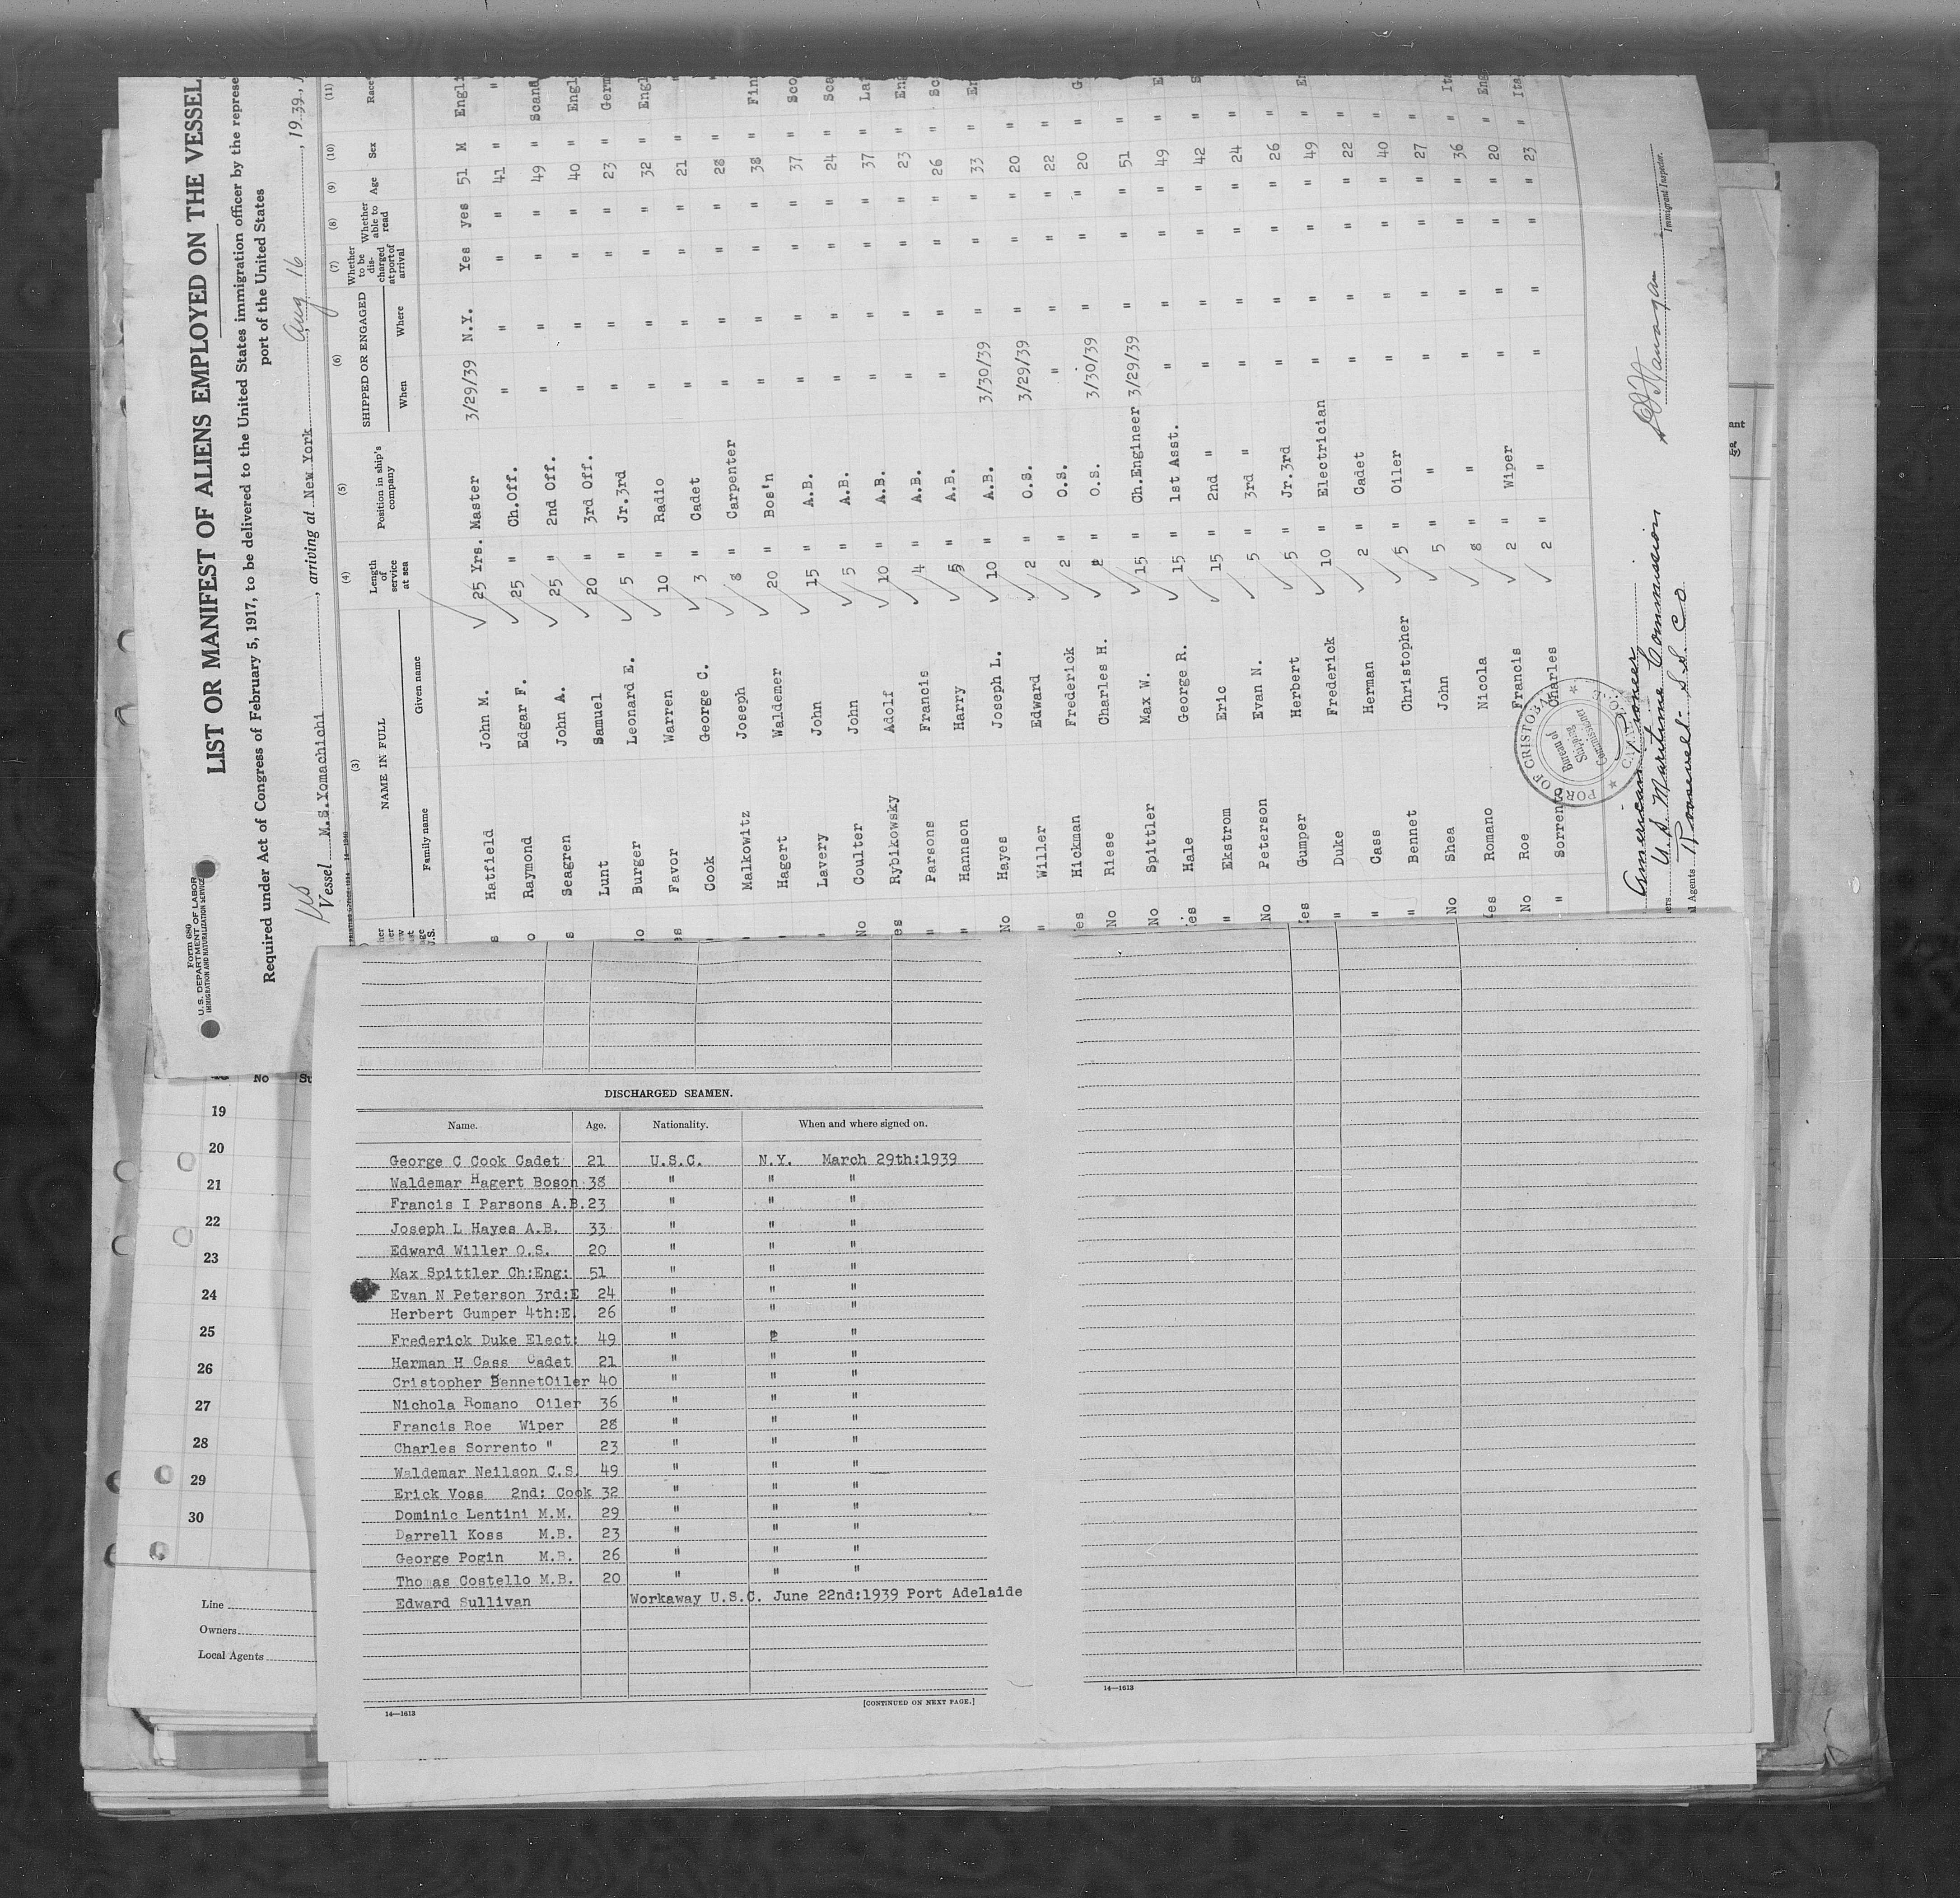 Form 680
U. S. DEPARTMENT OF LABOR
IMMIGRATION AND NATURALIZATION SERVICE
LIST OR MANIFEST OF ALIENS EMPLOYED ON THE VESSEL
Required under Act of Congress of February 5, 1917, to be delivered to the United States immigration officer by the represe
port of the United States
Vessel M.S.Yomachichi, arriving at New York, Aug 16, 1939,
(3) (4) (5) (6) (7) (8) (9) (10) (11)
NAME IN FULL
Family name Given name
Length of service at sea
Position in ship's company
SHIPPED OR ENGAGED
When Where
Whether to be discharged at port of arrival
Whether able to read
Age
Sex
Race
Hatfield John M. 25 Yrs. Master 3/29/39 N.Y. Yes yes 51 M Engli
Raymond Edgar F. 25 " Ch.Off. " " " " 41 " "
Seagren John A. 25 " 2nd Off. " " " " 49 " Scand
Lunt Samuel 20 " 3rd Off. " " " " 40 " Engl
No Burger Leonard E. 5 " Jr.3rd " " " " 23 " Germ
Favor Warren 10 " Radio " " " " 32 " Engl
Cook George C. 3 " Cadet " " " " 21 " "
Malkowitz Joseph 8 " Carpenter " " " " 28 " "
Hagert Waldemer 20 " Bos'n " " " " 38 " Fin
Lavery John 15 " A.B. " " " " 37 " Sco
No Coulter John 5 " A.B. " " " " 24 " Sca
Rybikowsky Adolf 10 " A.B. " " " " 37 " La
" Parsons Francis 4 " A.B. " " " " 23 " Eng
" Hannson Harry 5 " A.B. " " " " 26 " Sc
No Hayes Joseph L. 10 " A.B. 3/30/39 " " " 33 " En
" Willer Edward 2 " O.S. 3/29/39 " " " 20 "
Hickman Frederick 2 " O.S. " " " " 22 "
No Riese Charles H. 2 " O.S. 3/30/39 " " " 20 " G
No Spittler Max W. 15 " Ch.Engineer 3/29/39 " " " 51 "
Hale George R. 15 " 1st Asst. " " " " 49 " E
" Ekstrom Eric 15 " 2nd " " " " " 42 " S
No Peterson Evan N. 5 " 3rd " " " " " 24 "
Gumper Herbert 5 " Jr.3rd " " " " 26 "
" Duke Frederick 10 " Electrician " " " " 49 " E
" Cass Herman 2 " Cadet " " " " 22 "
" Bennet Christopher 5 " Oiler " " " " 40 "
No Shea John 5 " " " " " " 27 "
Romano Nicola 8 " " " " " " 36 " Ita
No Roe Francis 2 " Wiper " " " " 20 " Eng
" Sorrento Charles 2 " " " " " " 23 " Ita
PORT OF CRISTOBAL
Bureau of Shipping Commissioner
American Pioneer
U.S. Maritime Commission
l Agents Roosevelt S.S. Co
Immigrant Inspector.
No Su
19
20
21
22
23
24
25
26
27
28
29
30
Line
Owners
Local Agents
DISCHARGED SEAMEN.
Name. Age. Nationality. When and where signed on.
George C Cook Cadet 21 U.S.C. N.Y. March 29th:1939
Waldemar Hagert Boson 38 " " "
Francis I Parsons A.B. 23 " " "
Joseph L Hayes A.B. 33 " " "
Edward Willer O.S. 20 " " "
Max Spittler Ch:Eng: 51 " " "
Evan N Peterson 3rd:E 24 " " "
Herbert Gumper 4th:E. 26 " " "
Frederick Duke Elect: 49 " " "
Herman H Cass Cadet 21 " " "
Cristopher BennetOiler 40 " " "
Nichola Romano Oiler 36 " " "
Francis Roe Wiper 28 " " "
Charles Sorrento " 23 " " "
Waldemar Neilson C.S. 49 " " "
Erick Voss 2nd: Cook 32 " " "
Dominic Lentini M.M. 29 " " "
Darrell Koss M.B. 23 " " "
George Pogin M.B. 26 " " "
Thomas Costello M.B. 20 " " "
Edward Sullivan Workaway U.S.C. June 22nd:1939 Port Adelaide
[CONTINUED ON NEXT PAGE.]
14—1613
14—1613